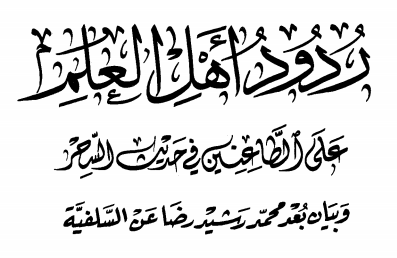 رُدُودُ أَهْلِ العِلْمِ
عَلَى الطَّاعِنِين فِي حَدِيْثِ السِّحْرِ
وَبَيَان بُعْد محمّد رَشِيْد رِضَا عَنْ السَّلَفِيَّة